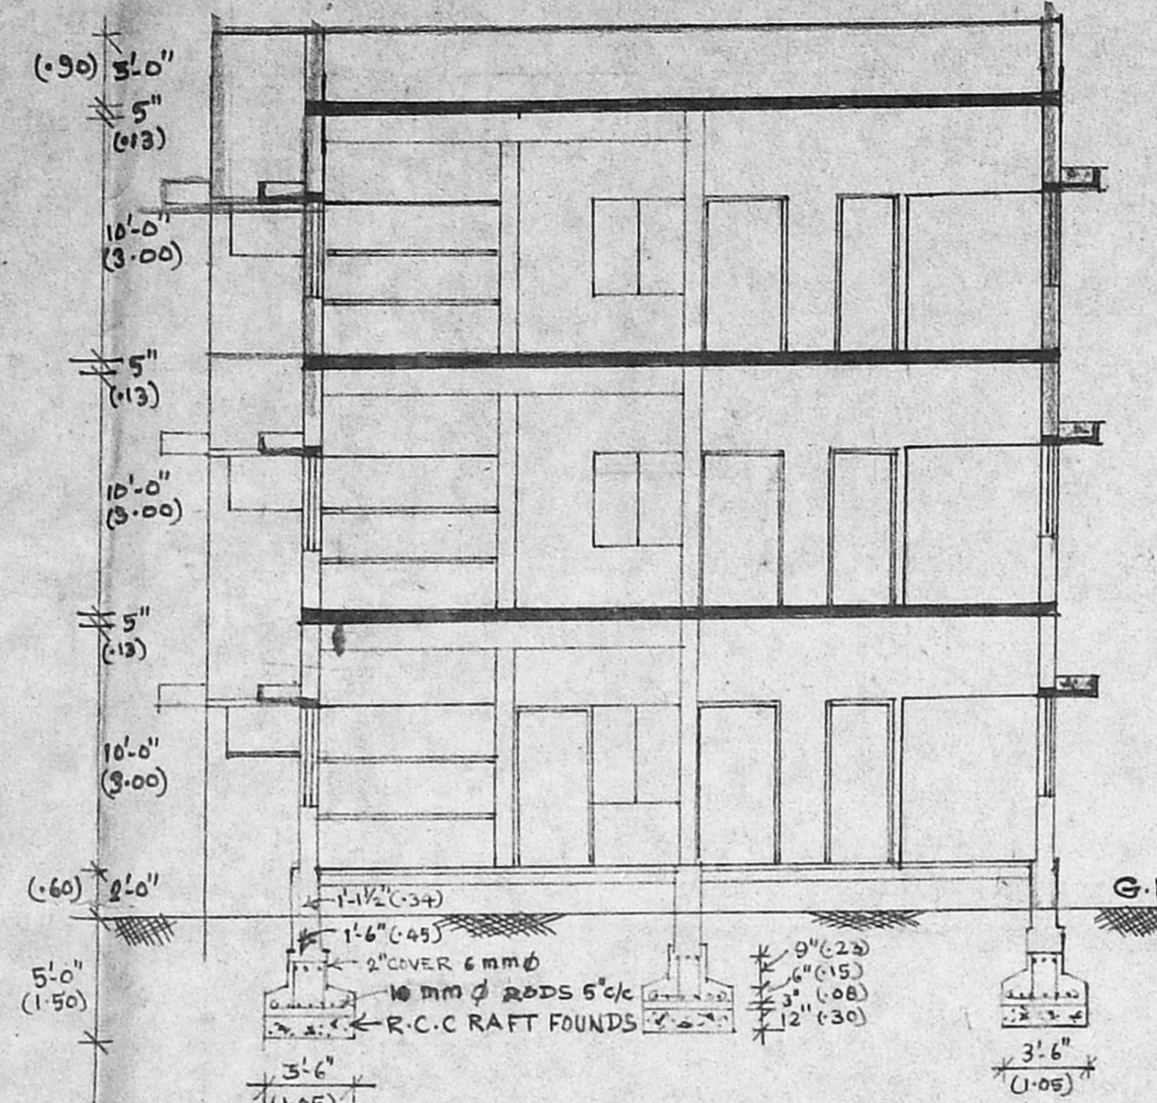 3'-0"
(.90)
5"
(.13)
10'-0"
(3.00)
5"
(.13)
10'-0"
(3.00)
5"
(.13)
10'-0"
(3.00)
(.60) 2'-0"
5'-0"
(1.50)
G.
1'-1½"(.34)
1'-6"(.45)
2"COVER 6mmϕ
10 mm ϕ RODS 5"c/c
R.C.C RAFT FOUNDS
9"(.23)
6"(.15)
3" (.08)
12"(.30)
3'-6"
(1.05)
3'-6"
(1.05)